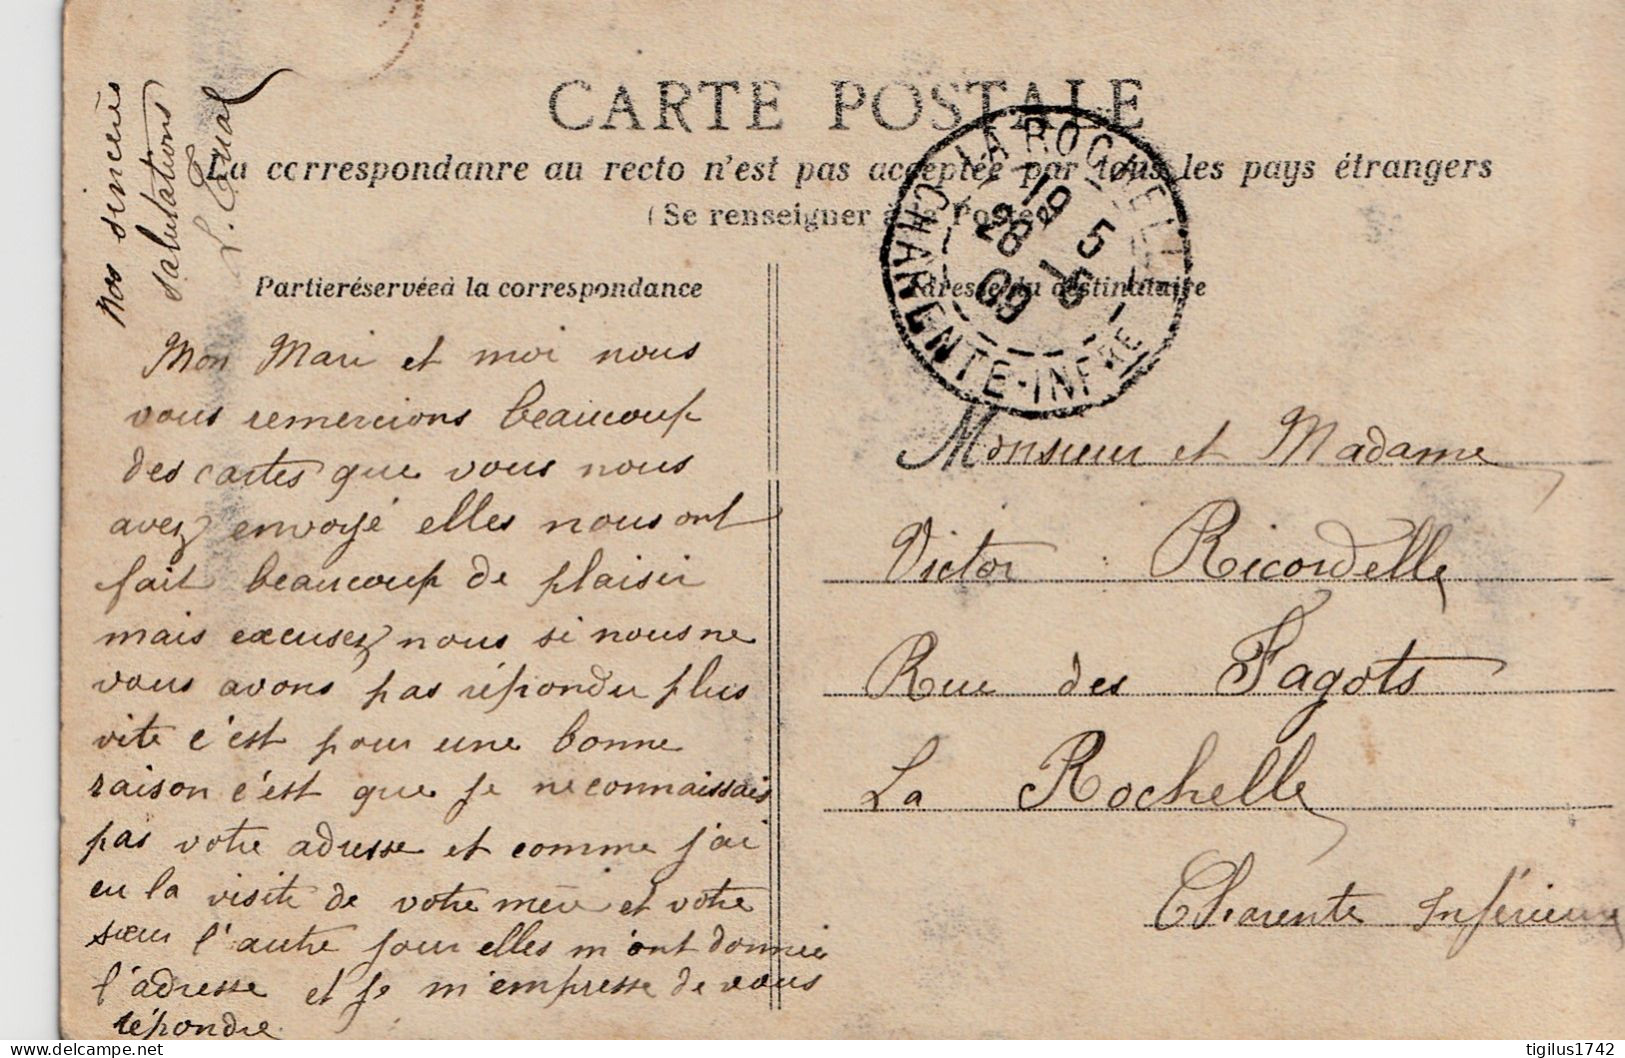 CARTE POSTALE
La correspondanre au recto n'est pas acceptée par tous les pays étrangers
(Se renseigner à la Poste)
Partie réservée à la correspondance
Adresse du destinataire
LA ROCHELLE
19 5
28 5
09
CHARENTE-INFRE
Nos sincères
salutations
Mon Mari et moi nous
vous remercions beaucoup
des cartes que vous nous
avez envoyé elles nous ont
fait beaucoup de plaisir
mais excusez nous si nous ne
vous avons pas répondu plus
vite c'est pour une bonne
raison c'est que je ne connaissais
pas votre adresse et comme j'ai
eu la visite de votre mère et votre
sœur l'autre jour elles m'ont donnée
l'adresse et je m'empresse de vous
répondre
Monsieur et Madame
Victor Ricordelle
Rue des Fagots
La Rochelle
Charente Inférieure
tigilus1742